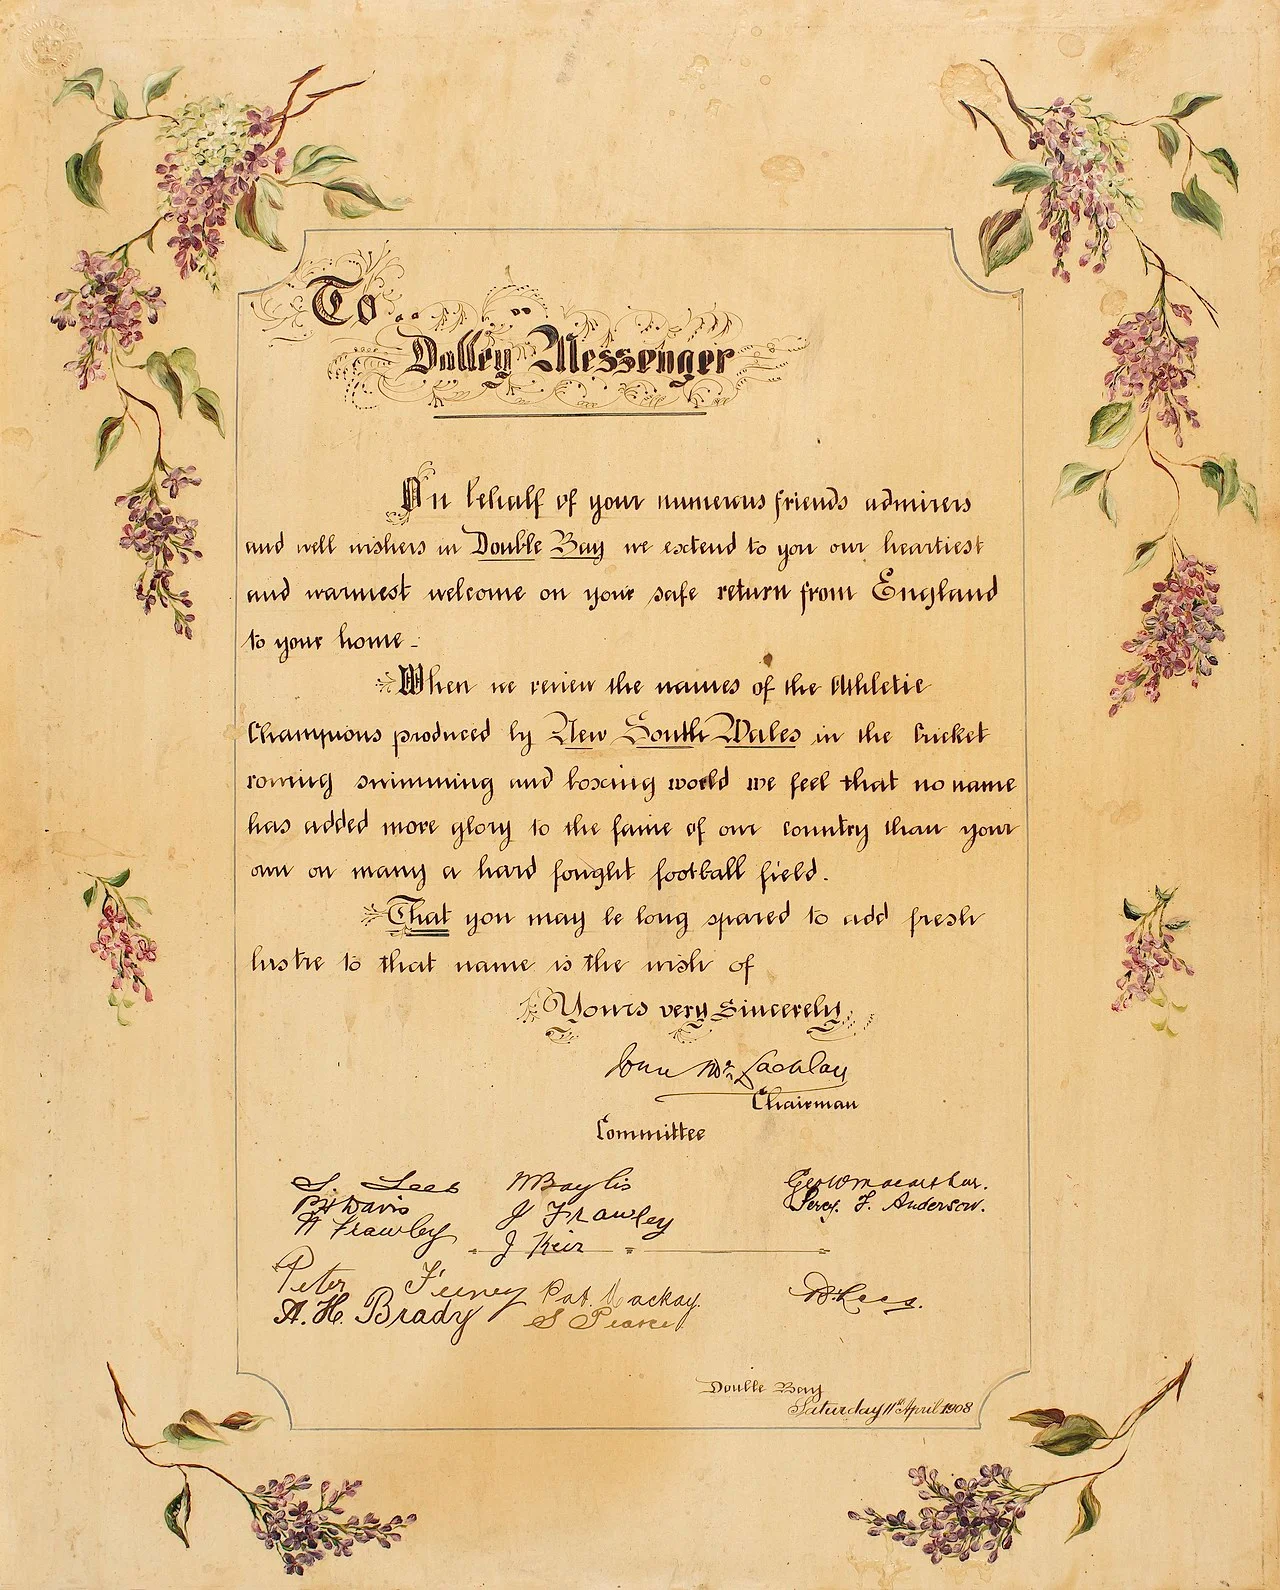 To
Dally Messenger
On behalf of your numerous friends admirers
and well wishers in Double Bay we extend to you our heartiest
and warmest welcome on your safe return from England
to your home -
When we review the names of the Athletic
Champions produced by New South Wales in the Cricket
rowing swimming and boxing world we feel that no name
has added more glory to the fame of our country than your
own on many a hard fought football field.
That you may be long spared to add fresh
lustre to that name is the wish of
Yours very sincerely
McLachlan
Chairman
Committee
S. Lees W Baylis Geo W Macarthur.
Davis J Frawley Percy. F. Anderson.
H Frawley J Keir
Peter Feeney Pat. Mackay. Lees.
A. H. Brady S Pearce
Double Bay
Saturday 11th April 1908